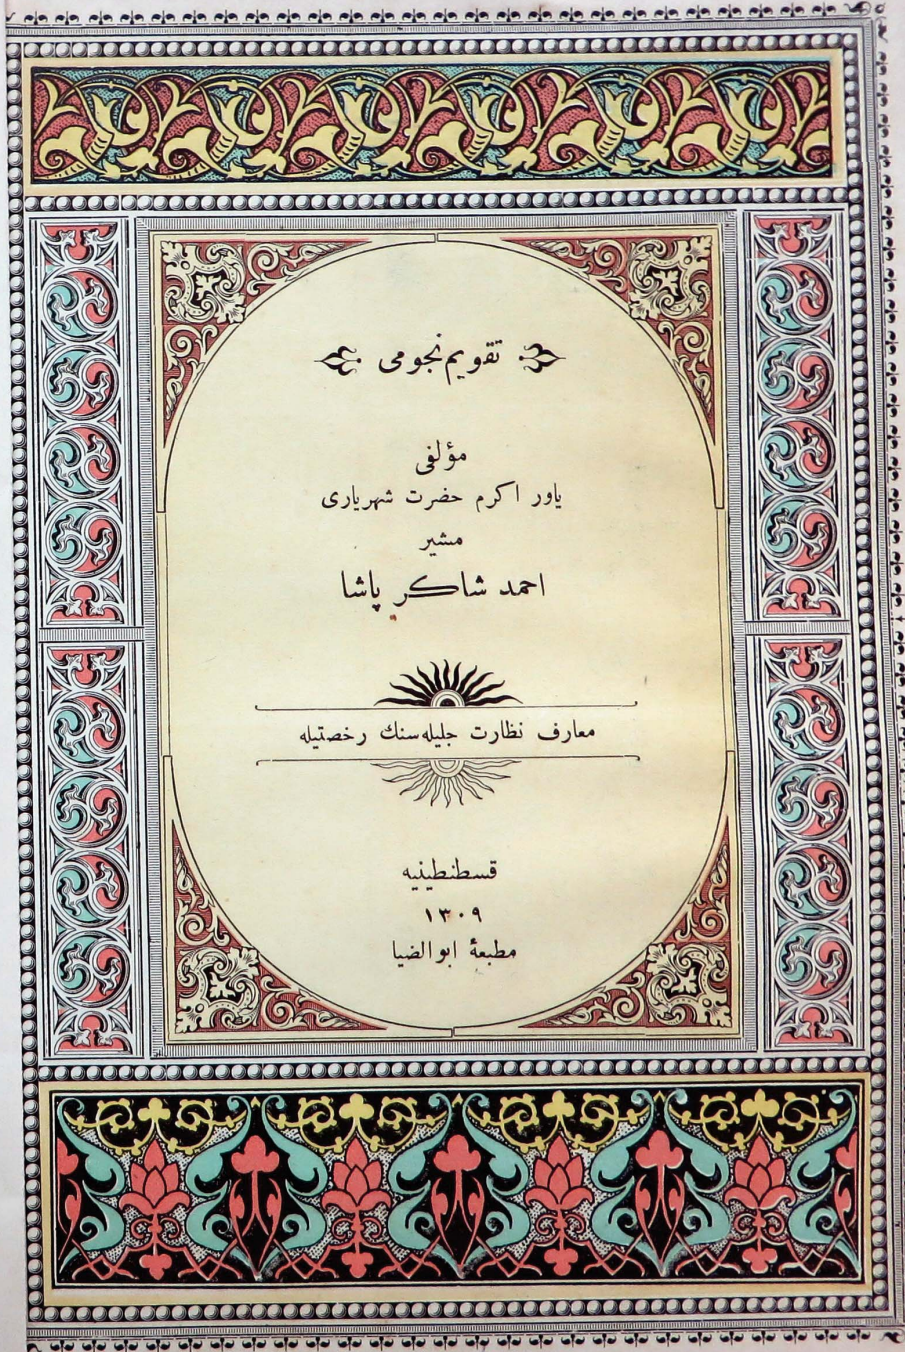 تقويم نجومى
مؤلفى
ياور اكرم حضرت شهريارى
مشير
احمد شاكر پاشا
معارف نظارت جليله‌سنك رخصتيله
قسطنطينيه
١٣٠٩
مطبعۀ ابوالضيا